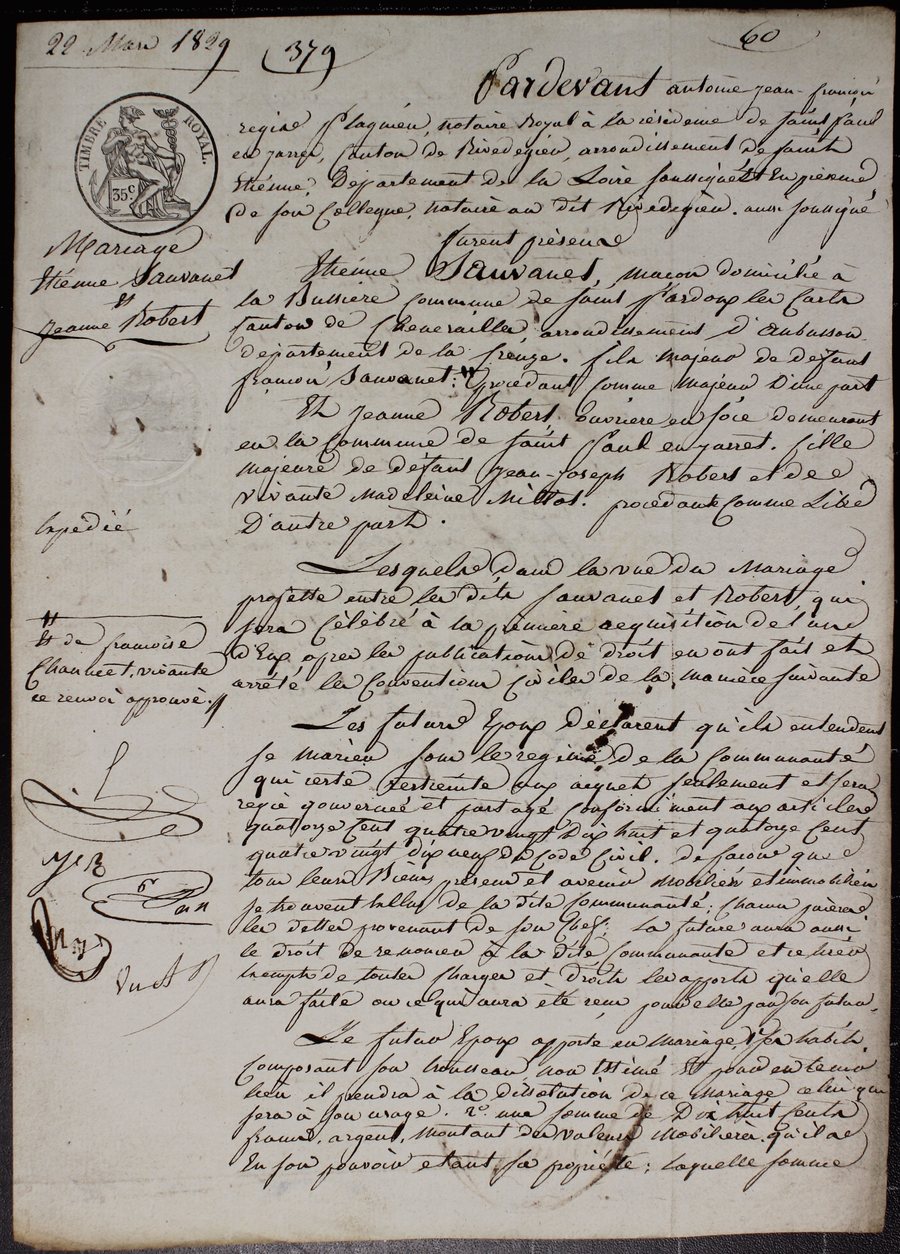 22 Mars 1829
(379
60
TIMBRE ROYAL.
35c.
Pardevant antoine jean-françois
regis flaqnien, notaire Royal à la résidence de saint paul
en jarret, Canton de Rivedegier, arrondissement de saint
Etienne, Département de la Loire soussigné Et En présence
de son Collegue, notaire au dit Rivedegier. aussi soussigné
furent présens
Etiénne Sauvanet, maçon domicilié à
la Bussiére commune de saint Pardoux les Carts
Canton de Chenerailles, arrondissement d'aubusson
département de la Creuze. fils majeur de defunt
françois Sauvanet: procédant comme majeur D'une part
Et Jeanne Robert. ouvriere en soie demeurant
en la Commune de saint Paul en jarret. fille
majeure de défunt jean-joseph Robert et de
vivante Madeleine Millot. procédante Comme Libre
D'autre part.
Lesquels dans la vue du Mariage
projetté entre les dits Sauvanet et Robert, qui
sera Célébré à la premiére réquisition de l'un
d'Eux après les publications de droit en ont fait et
arrété les Conventions Civiles de la maniére suivante
Les futurs Epoux déclarent qu'ils entendent
se marier sous le regime de la Communauté
qui sera restreinte aux acquets seulement et sera
regie gouvernée et partagé Conformément aux articles
quatorze Cent quatre vingt Dix huit et quatorze Cent
quatre vingt dix neuf du Code Civil. de façon que
tous leurs Biens présens et avenir mobiliers et immobiliers
se trouvent Exclus de la dite Communauté; chacun paiera
les dettes provenant de son Chef; La future aura aussi
le droit de renoncer à la dite Communauté et
Exempte de toutes Charges et droits les apports qu'elle
aura faits ou ce qui aura été reçu pour elle par son futur.
Le futur Epoux apporte en mariage, 1° ses habits
Composant son trousseau non Estimé Et pour en tenir
lieu il prendra à la dissolution de ce Mariage celui qui
sera à son usage. 2° une somme de Dix huit Cents
francs. argent, montant du valeurs mobiliéres. qu'il a
En son pouvoir etant sa propriété; laquelle somme
Mariage
Etiénne Sauvanet
Et
Jeanne Robert
Expedié
Et de françoise
Chaumet, vivante
ce renvoi approuvé.